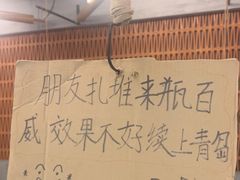 朋友扎堆来瓶百
威效果不好续上青岛